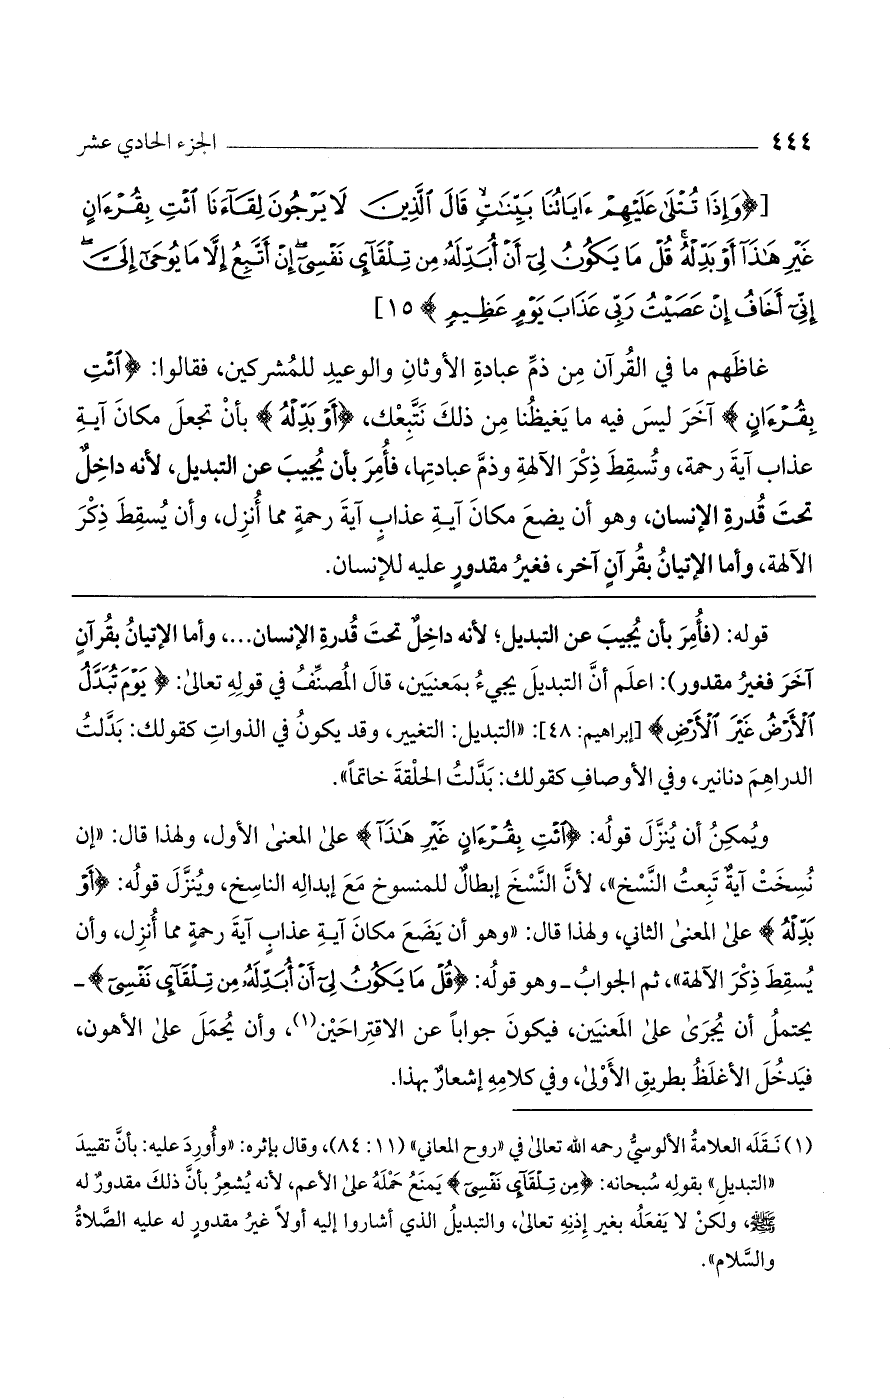 ٤٤٤ الجزء الحادي عشر
[﴿وَإِذَا تُتْلَىٰ عَلَيْهِمْ ءَايَاتُنَا بَيِّنَٰتٍ قَالَ ٱلَّذِينَ لَا يَرْجُونَ لِقَآءَنَا ٱئْتِ بِقُرْءَانٍ
غَيْرِ هَٰذَآ أَوْ بَدِّلْهُ ۚ قُلْ مَا يَكُونُ لِىٓ أَنْ أُبَدِّلَهُۥ مِن تِلْقَآئِ نَفْسِىٓ ۖ إِنْ أَتَّبِعُ إِلَّا مَا يُوحَىٰٓ إِلَىَّ ۖ
إِنِّىٓ أَخَافُ إِنْ عَصَيْتُ رَبِّى عَذَابَ يَوْمٍ عَظِيمٍ﴾ ١٥]
غاظَهم ما في القُرآن مِن ذمِّ عبادةِ الأوثانِ والوعيدِ للمُشركين، فقالوا: ﴿ٱئْتِ
بِقُرْءَانٍ﴾ آخَرَ ليسَ فيه ما يَغيظُنا مِن ذلكَ نَتَّبِعْك، ﴿أَوْ بَدِّلْهُ﴾ بأنْ تجعلَ مكانَ آيةِ
عذاب آيةَ رحمة، وتُسقِطَ ذِكْرَ الآلهةِ وذمَّ عبادتِها، فأُمِرَ بأن يُجيبَ عن التبديل، لأنه داخِلٌ
تحتَ قُدرةِ الإنسان، وهو أن يضعَ مكانَ آيةِ عذابٍ آيةَ رحمةٍ مما أُنزِل، وأن يُسقِطَ ذِكْرَ
الآلهة، وأما الإتيانُ بقُرآنٍ آخر، فغيرُ مقدورٍ عليه للإنسان.
قوله: (فأُمِرَ بأن يُجيبَ عن التبديل؛ لأنه داخِلٌ تحتَ قُدرةِ الإنسان...، وأما الإتيانُ بقُرآنٍ
آخرَ فغيرُ مقدور): اعلَم أنَّ التبديلَ يجيءُ بمَعنيَين، قالَ المُصنِّفُ في قولِهِ تعالىٰ: ﴿يَوْمَ تُبَدَّلُ
ٱلْأَرْضُ غَيْرَ ٱلْأَرْضِ﴾ [إبراهيم: ٤٨]: «التبديل: التغيير، وقد يكونُ في الذواتِ كقولك: بَدَّلتُ
الدراهِمَ دنانير، وفي الأوصافِ كقولك: بَدَّلتُ الحلْقةَ خاتماً».
ويُمكِنُ أن يُنزَّلَ قولُه: ﴿ٱئْتِ بِقُرْءَانٍ غَيْرِ هَٰذَآ﴾ علىٰ المعنىٰ الأول، ولهذا قال: «إن
نُسِخَتْ آيةٌ تَبِعتُ النَّسْخ»، لأنَّ النَّسْخَ إبطالٌ للمنسوخ مَعَ إبدالِه الناسِخ، ويُنزَّلَ قولُه: ﴿أَوْ
بَدِّلْهُ﴾ علىٰ المعنىٰ الثاني، ولهذا قال: «وهو أن يَضَعَ مكانَ آيةِ عذابٍ آيةَ رحمةٍ مما أُنزِل، وأن
يُسقِطَ ذِكْرَ الآلهة»، ثم الجوابُ ـ وهو قولُه: ﴿قُلْ مَا يَكُونُ لِىٓ أَنْ أُبَدِّلَهُۥ مِن تِلْقَآئِ نَفْسِىٓ﴾ ـ
يحتملُ أن يُجرَىٰ علىٰ المَعنيَين، فيكونَ جواباً عن الاقتِراحَيْن(١)، وأن يُحمَلَ علىٰ الأهون،
فيَدخُلَ الأغلَظُ بطريقِ الأَوْلىٰ، وفي كلامِهِ إشعارٌ بهذا.
(١) نَقَلَه العلامةُ الألوسيُّ رحمه الله تعالىٰ في «روح المعاني» (١١: ٨٤)، وقال بإثره: «وأُورِدَ عليه: بأنَّ تقييدَ
«التبديلِ» بقولِه سُبحانه: ﴿مِن تِلْقَآئِ نَفْسِىٓ﴾ يَمنَعُ حَمْلَهُ علىٰ الأعم، لأنه يُشعِرُ بأنَّ ذلكَ مقدورٌ له
ﷺ، ولكنْ لا يَفعَلُه بغير إذنِهِ تعالىٰ، والتبديلُ الذي أشاروا إليه أولاً غيرُ مقدورٍ له عليه الصَّلاةُ
والسَّلام».